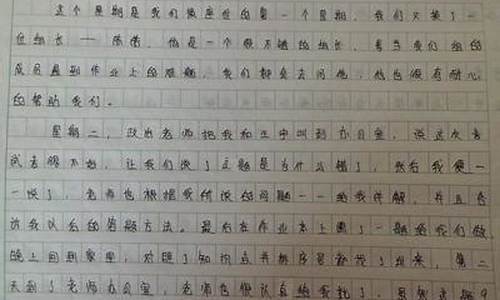 这个星期是我们换座位的第一个星期，我们又换了一
位组长——陈倩，他是一个很不错的组长，每当我们组的
成员遇到作业上的难题，我们都会去问他，他也很有耐心
的帮助我们。
星期二，政治老师把我和王宇叫到办公室，说这次考
试考得不好，让我们说了这题是为什么错了，然后我便一
一说了，老师也根据我所说的问题一一给我讲解，并且告
诉我以后的答题方法。最后在作业本上圈了一题给我们做，
晚上回到家里，对照了知识点并排序号就找了出来，第二
天到了老师办公室，老师也很认真给我批了，